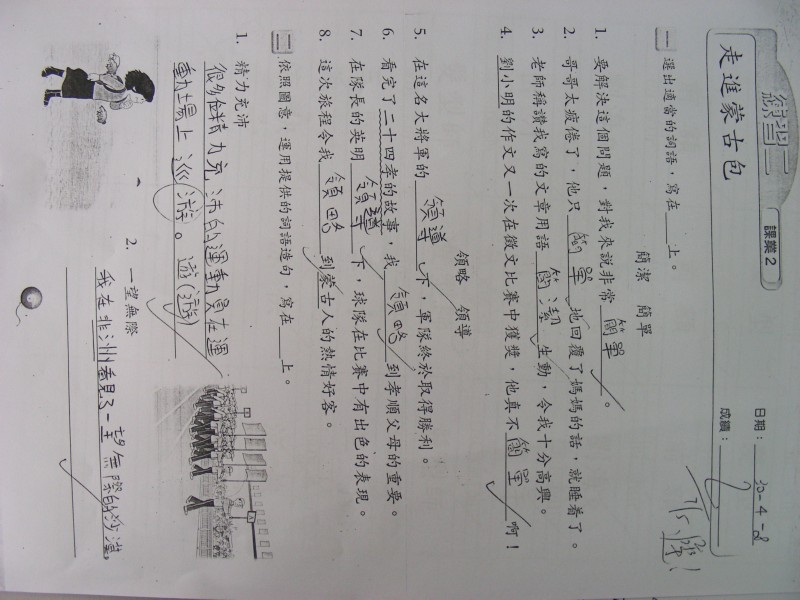 課業2
走進蒙古包
日期：30-4-2
成績：
一 選出適當的詞語，寫在＿＿上。
簡潔 簡單
1. 要解決這個問題，對我來說非常簡單。
2. 哥哥太疲倦了，他只簡單地回覆了媽媽的話，就睡着了。
3. 老師稱讚我寫的文章用語簡潔生動，令我十分高興。
4. 劉小明的作文又一次在徵文比賽中獲獎，他真不簡單啊！
領略 領導
5. 在這名大將軍的領導下，軍隊終於取得勝利。
6. 看完了二十四孝的故事，我領略到孝順父母的重要。
7. 在隊長的英明領導下，球隊在比賽中有出色的表現。
8. 這次旅程令我領略到蒙古人的熱情好客。
二 依照圖意，運用提供的詞語造句，寫在＿＿上。
1. 精力充沛
很多精力充沛的運動員在運
動場上巡游。遊(游)
2. 一望無際
我在非洲看見了一望無際的沙漠。